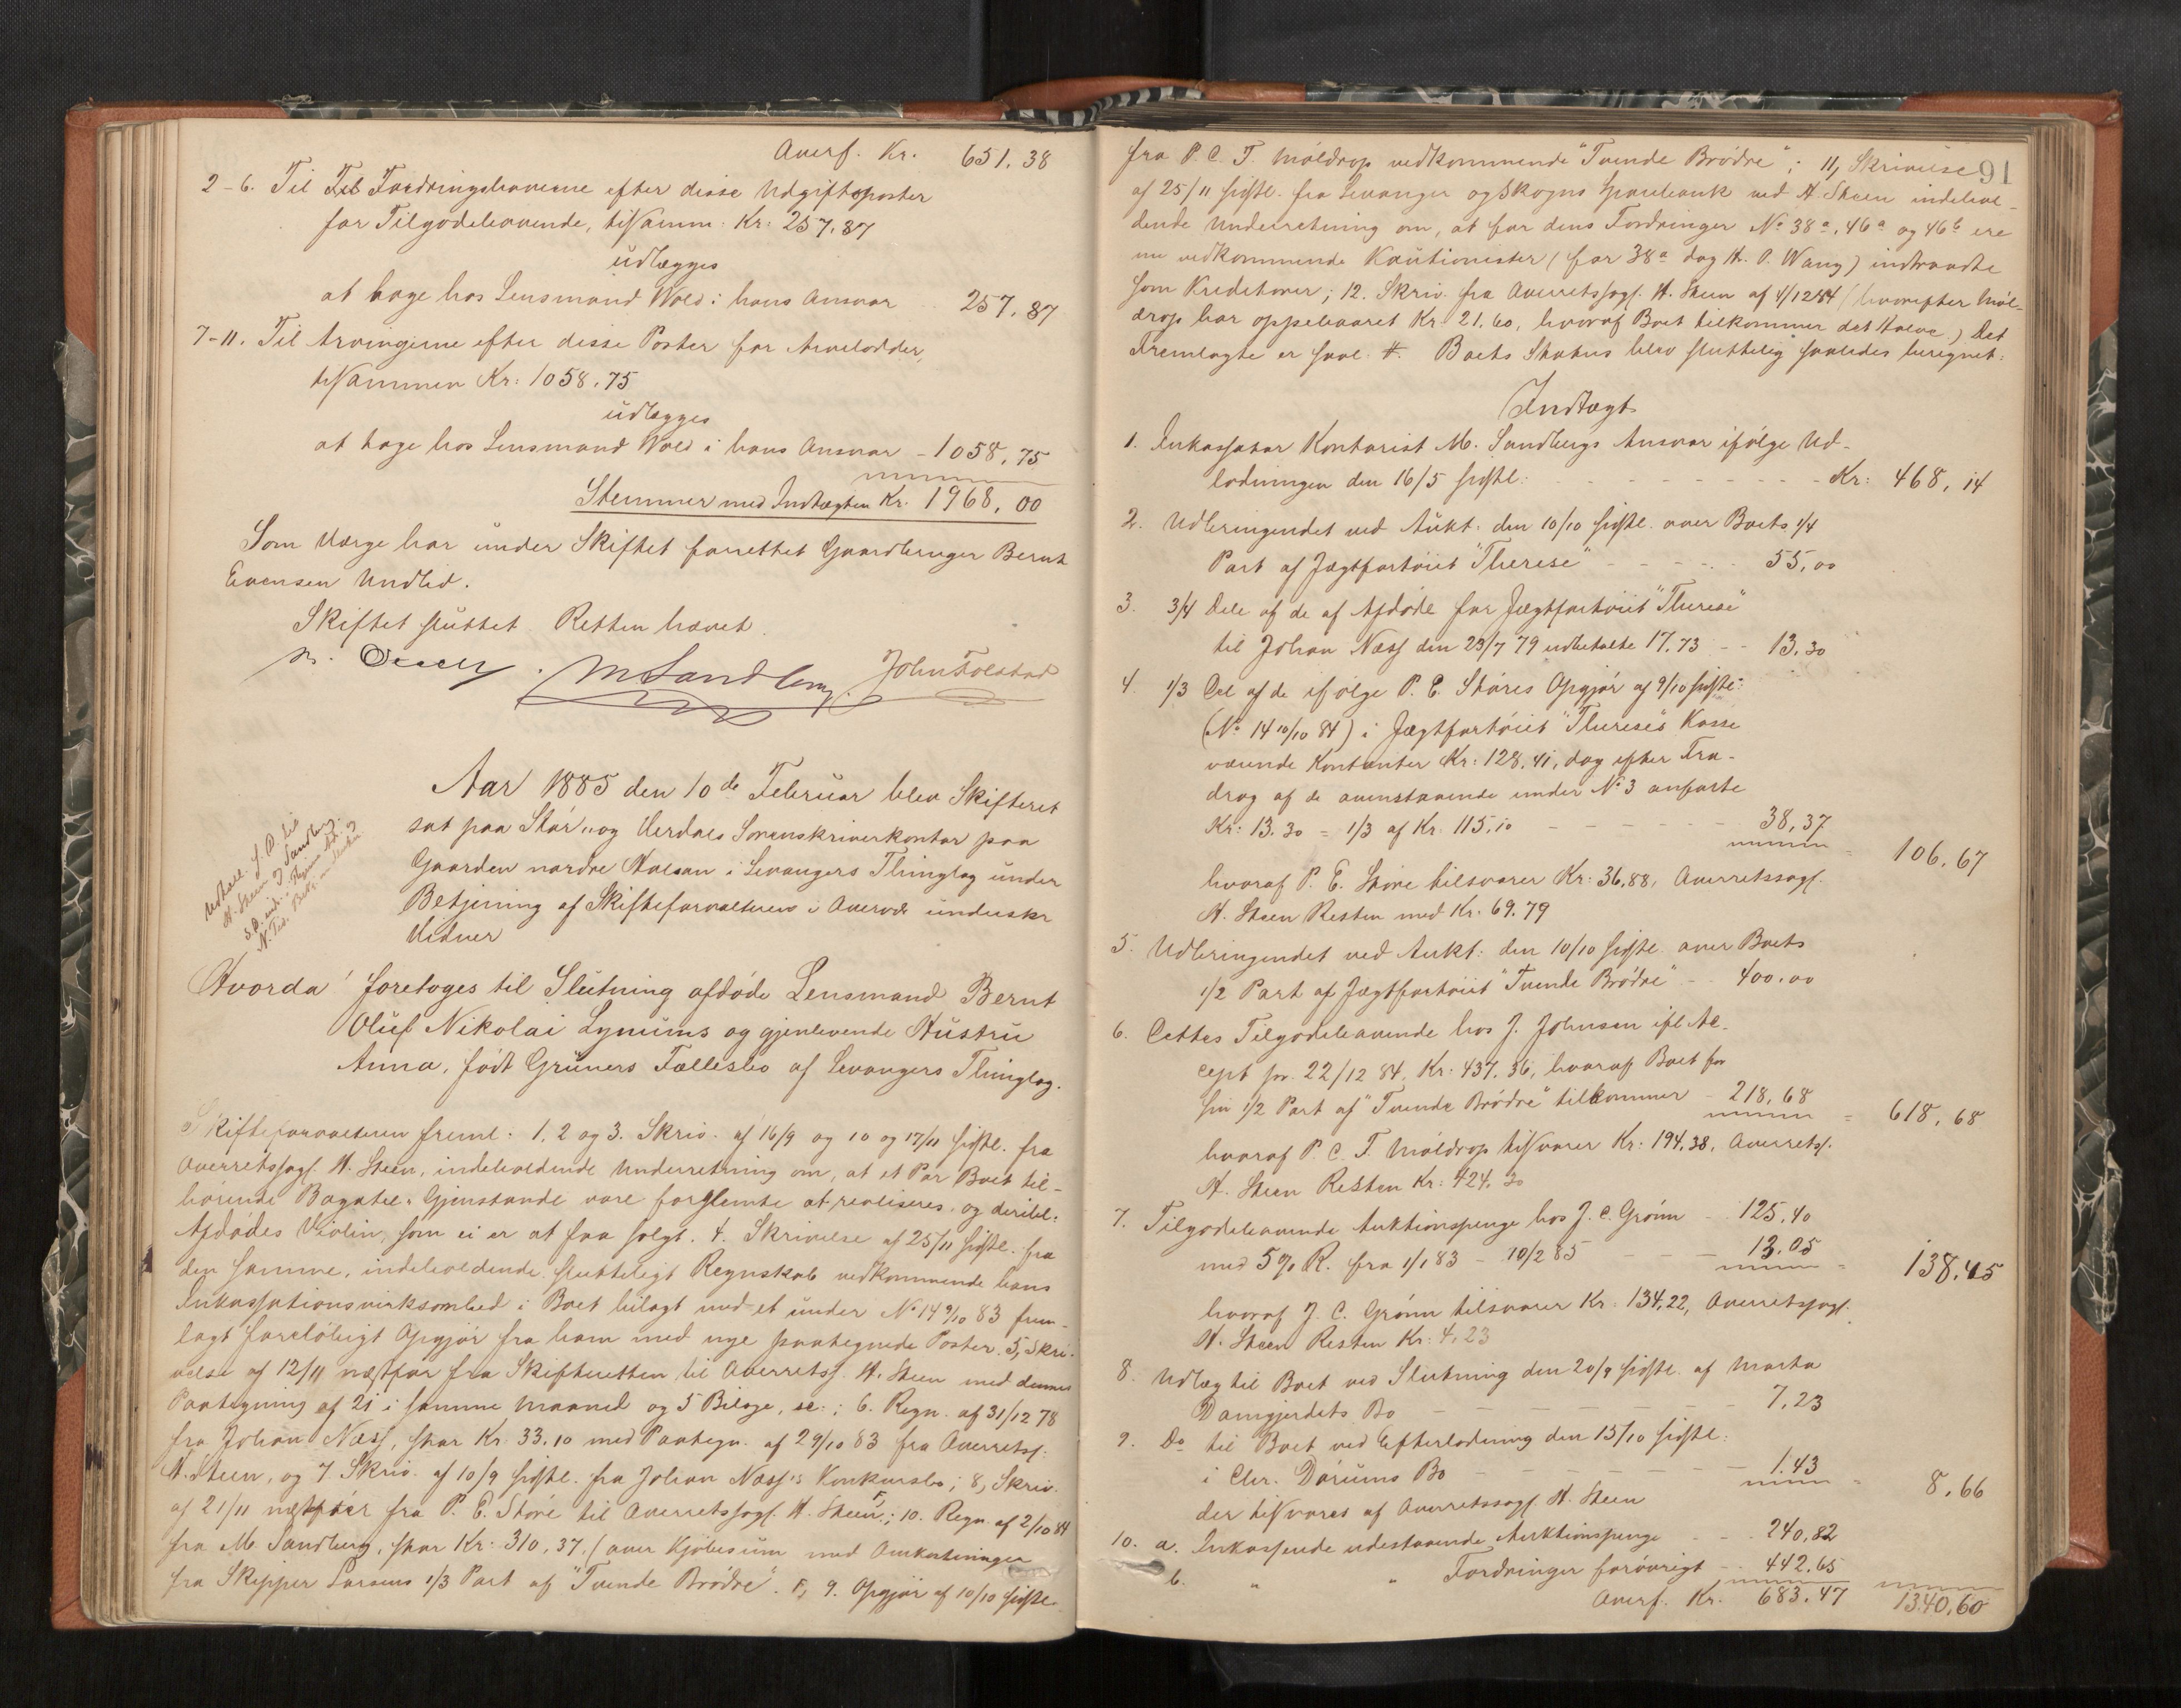 Overf. Kr. 651.38
2-6. Til Fordringshaverne efter disse Udgiftsposter
for Tilgodehavende, tilsamm: Kr: 257.87
udlægges
at tage hos Lensmand Wold i hans Ansvar 257.87
7-11. Til Arvingerne efter disse Poster for Arvelodder,
tilsammen Kr: 1058.75
udlægges
at tage hos Lensmand Wold i hans Ansvar - 1058.75
Stemmer med Indtægten Kr. 1968.00
Som Værge har under Skiftet forrettet Gaardbruger Bernt
Evensen Undlid.
Skiftet sluttet. Retten hævet.
MSandberg. John Tolstad
Aar 1885 den 10de Februar blev Skifteret
sat paa Stør- og Værdals Sorenskriverkontor paa
Gaarden nordre Halsan i Levangers Thinglag under
Betjening af Skifteforvalteren i Overvær underskr
Vidner
Hvorda foretoges til Slutning afdøde Lensmand Bernt
Oluf Nikolai Lynums og gjenlevende Hustru
Anna, født Grüners Fællesbo af Levangers Thinglag.
Skifteforvalteren freml. 1, 2 og 3. Skriv. af 16/9 og 10 og 17/11 sidstl. fra
Overretssagf. H. Steen, indeholdende Underretning om, at et Par Boet til-
hørende Bagatel-Gjenstande vare forglemte at realiseres, og deribl.
Afdødes Violin, som ei er at faa solgt. 4. Skrivelse af 25/11 sidstl. fra
den samme, indeholdende slutteligt Regnskab vedkommende hans
Inkassationsvirksomhed i Boet bilagt med et under No 14 9/10 83 frem-
lagt foreløbigt Opgjør fra ham med nye paategnede Poster. 5, Skri-
velse af 12/11 næstfør fra Skifteretten til Overretss. H. Steen med dennes
Paategning af 21 i samme Maaned og 5 Bilage, sc.: 6. Regn. af 31/12 78
fra Johan Næss, stor Kr. 33.10 med Paategn. af 29/10 83 fra Overretss.
H. Steen, og 7. Skriv. af 10/9 sidstl. fra Johan Næss's Konkursbo; 8, Skriv.
af 21/11 næstfør fra P. E. Støre til Overretssagf. H. Steen; 10. Regn. af 2/10 84
fra M. Sandberg, stor Kr: 310.37. (over Kjøbesum med Omkostninger
fra Skipper Larsens 1/3 Part af "Tvende Brødre". F, 9. Opgjør af 10/10 sidstl.
91
fra P. C. T. Møldrop vedkommende "Tvende Brødre"; 11, Skrivelse
af 25/11 sidstl. fra Levanger og Skogns Sparebank ved H Steen indehol-
dende Underretning om, at for dens Fordringer No 38a, 46a og 46b ere
nu vedkommende Kautionister (for 38a dog H. P. Wang) indtraadte
som Kreditorer; 12. Skriv. fra Overretssagf. H. Steen af 4/12 84 (hvorefter Møl-
drop har oppebaaret Kr. 21.60, hvoraf Boet tilkommer det Halve.) Det
Fremlagte er saal. #. Boets Status blev sluttelig saaledes beregnet:
Indtægt
1. Inkassator Kontorist M. Sandbergs Ansvar ifølge Ud-
lodningen den 16/5 sidstl: Kr: 468,14
2. Udbringendet ved Aukt: den 10/10 sidstl. over Boets 1/4
Part af Jægtfartøiet "Therese" 55,00
3. 3/4 Dele af de af Afdøde for Jægtfartøiet "Therese"
til Johan Næss den 23/7 79 udbetalte 17.73 13.30
4. 1/3 Del af de ifølge P. E. Støres Opgjør af 9/10 sidstl:
(No 14 10/10 84) i Jægtfartøiet "Therese's Kasse
værende Kontanter Kr: 128.41, dog efter Fra-
drag af de ovenstaaende under No 3 anførte
Kr: 13.30 = 1/3 af Kr. 115.10 38,37 106,67
hvoraf P. E. Støre tilsvarer Kr: 36,88, Overretssagf.
H. Steen Resten med Kr. 69.79
5. Udbringendet ved Aukt: den 10/10 sidstl. over Boets
1/2 Part af Jægtfartøiet "Tvende Brødre" 400.00
6. Dettes Tilgodehavende hos J. Johnsen ifl. Ac-
cept pr. 22/12 84. Kr. 437.36, hvoraf Boet for
sin 1/2 Part af "Tvende Brødre" tilkommer 218,68 = 618,68
hvoraf P. C. T. Møldrop tilsvarer Kr: 194.38, Overretss.
H. Steen Resten Kr: 424.30
7. Tilgodehavende Auktionspenge hos J. C. Grønn 125.40
med 5% R. fra 1/1 83 - 10/2 85 13.05 = 138.45
hvoraf J. C. Grønn tilsvarer Kr: 134.22, Overretssagf.
H. Steen Resten Kr: 4.23
8. Udlæg til Boet ved Slutning den 20/9 sidstl. af Marta
Damgjerdets Bo 7,23
9. Do til Boet ved Efterlodning den 15/10 sidstl:
i Chr. Dørums Bo 1.43 = 8.66
der tilsvares af Overretssagf. H. Steen
10. a. Inkasserede udestaaende Auktionspenge 240.82
b. " " Fordringer forøvrigt 442.65
Overf. Kr. 683.47 1340,60